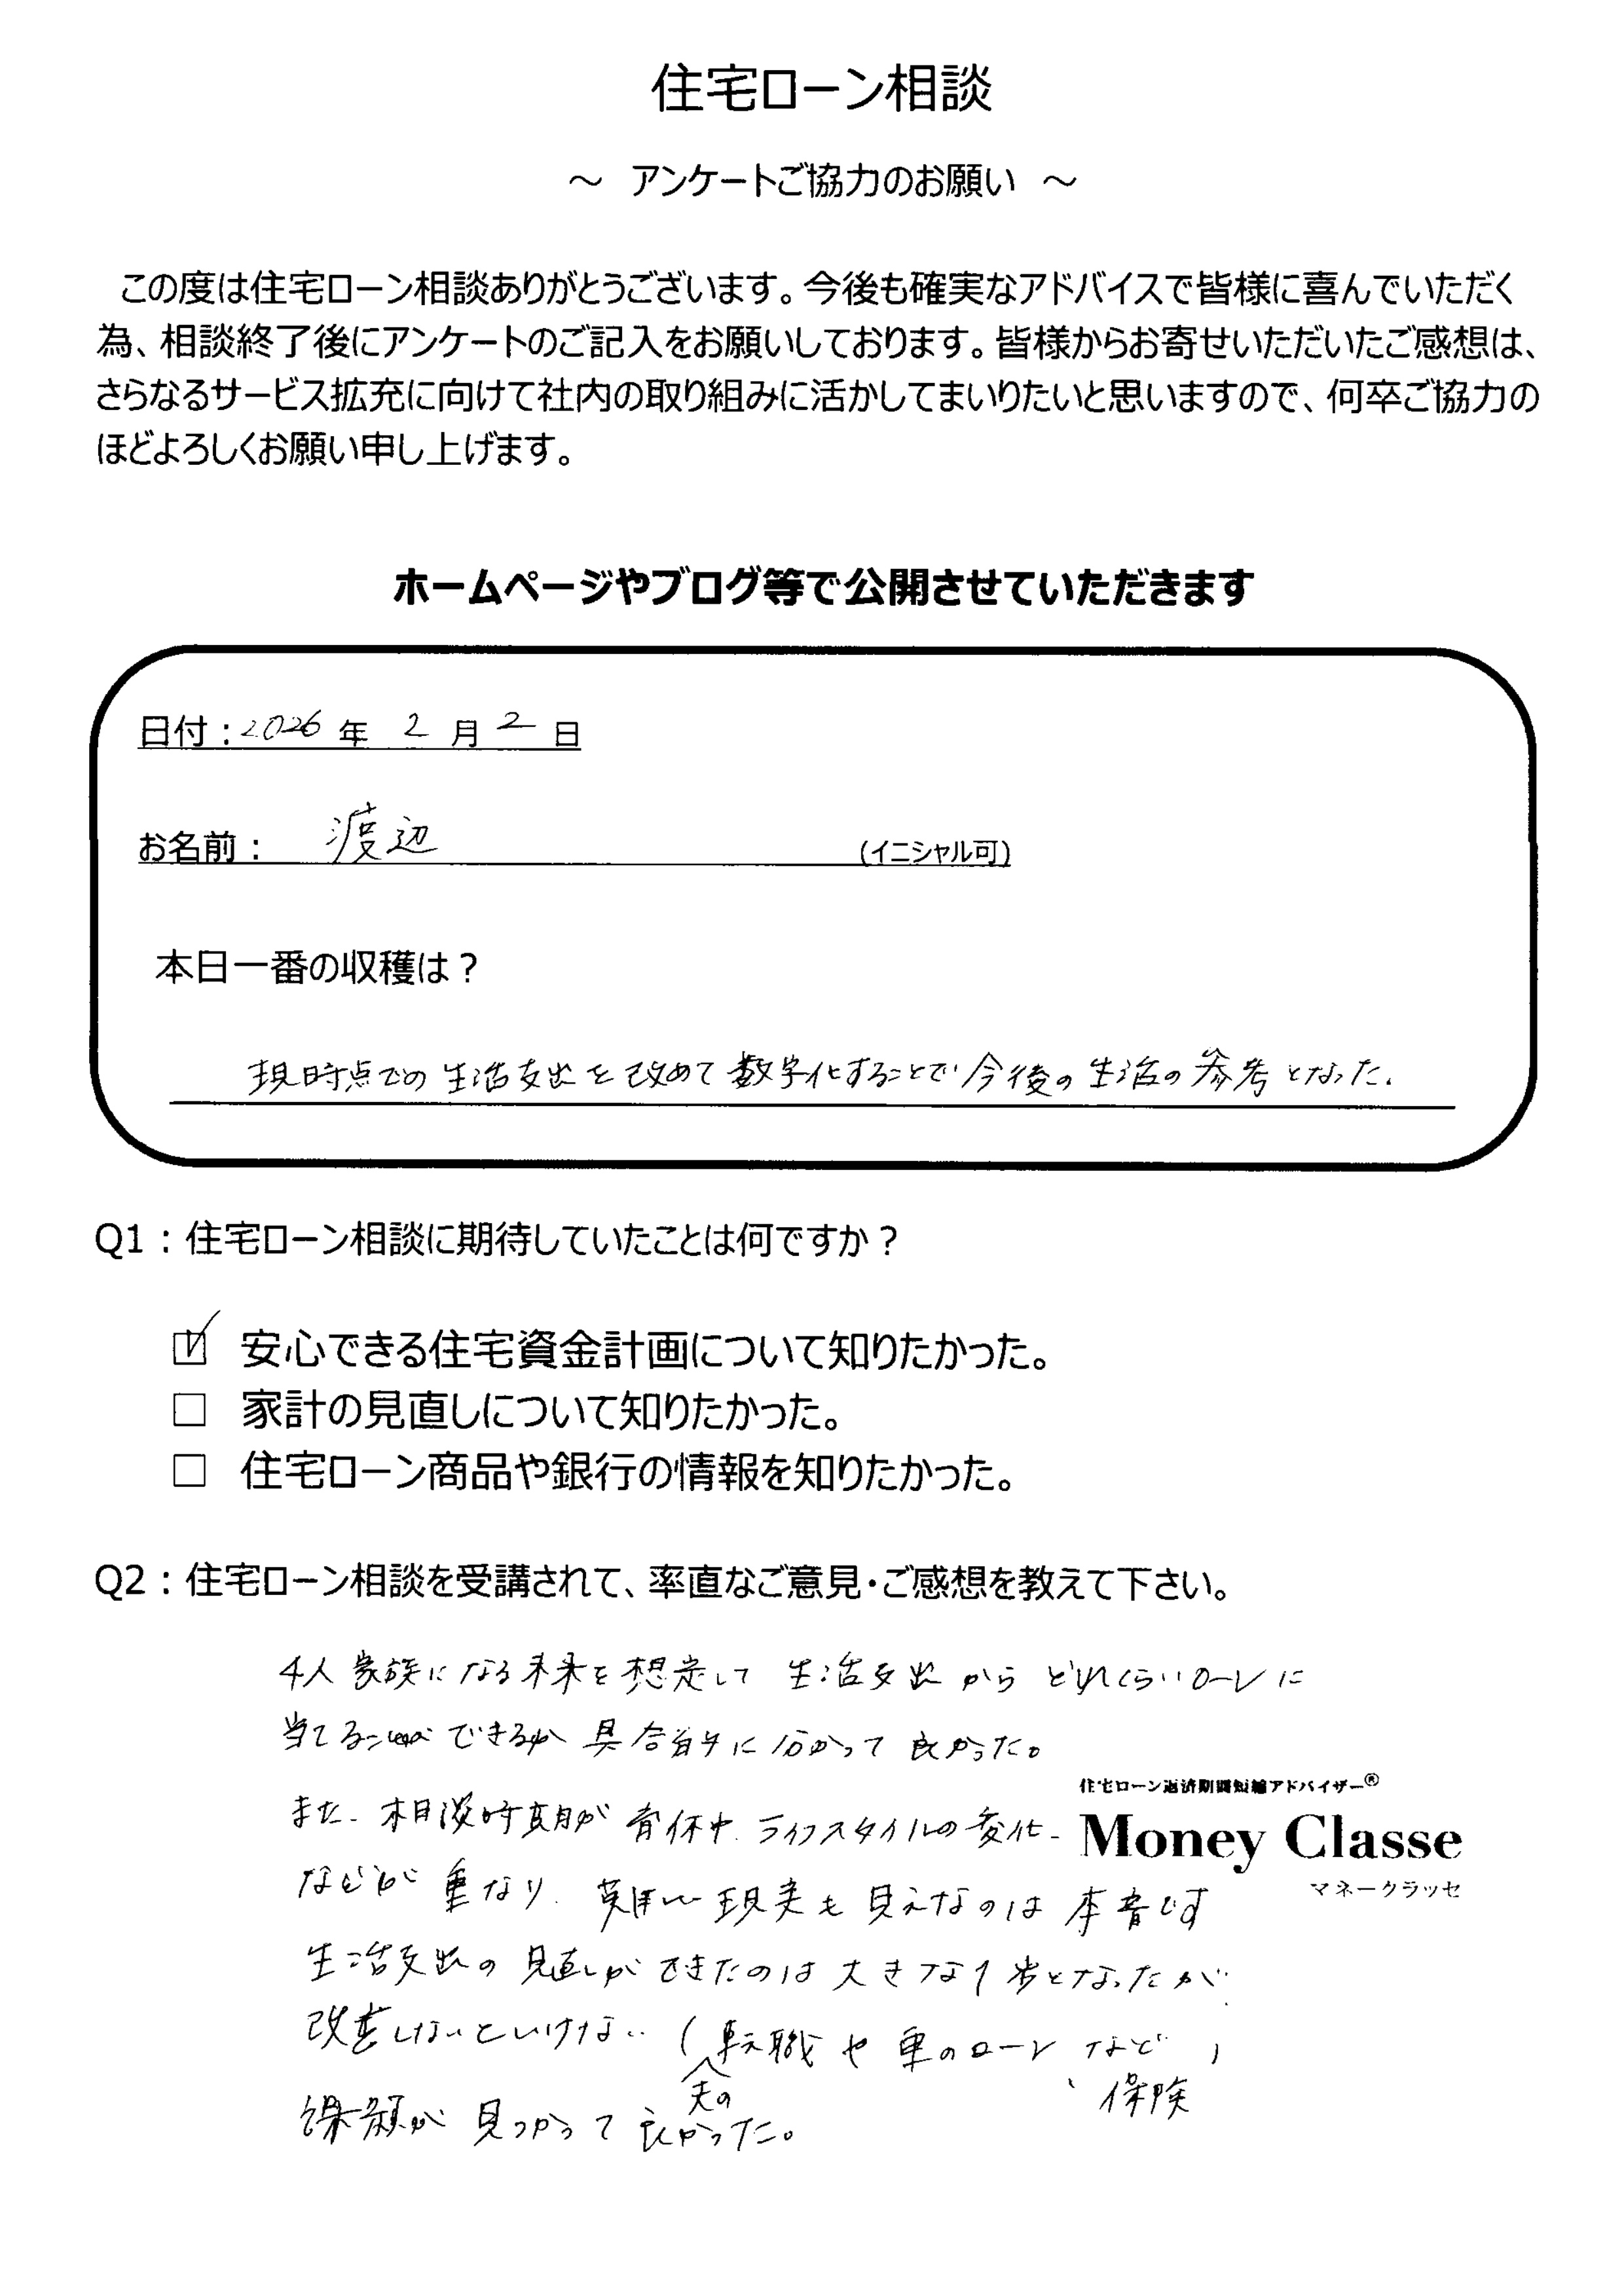 住宅ローン相談
～ アンケートご協力のお願い ～
この度は住宅ローン相談ありがとうございます。今後も確実なアドバイスで皆様に喜んでいただく
為、相談終了後にアンケートのご記入をお願いしております。皆様からお寄せいただいたご感想は、
さらなるサービス拡充に向けて社内の取り組みに活かしてまいりたいと思いますので、何卒ご協力の
ほどよろしくお願い申し上げます。
ホームページやブログ等で公開させていただきます
日付：2026 年 2 月 2 日
お名前： 渡辺 (イニシャル可)
本日一番の収穫は？
現時点での生活支出を改めて数字化することで今後の生活の参考となった.
Q1：住宅ローン相談に期待していたことは何ですか？
☑ 安心できる住宅資金計画について知りたかった。
□ 家計の見直しについて知りたかった。
□ 住宅ローン商品や銀行の情報を知りたかった。
Q2：住宅ローン相談を受講されて、率直なご意見・ご感想を教えて下さい。
4人家族になる未来を想定して 生活支出から どれくらいローンに
当てることができるか 具合的に分かって良かった。
また、相談時 が 育休中、ライフスタイルの変化、
などが重なり、難しい現実も見えたのは本音です
生活支出の見直しができたのは大きな1歩となったが、
改善しないといけない（転職や車のローンなど）
夫の 、保険
課題が見つかって良かった。
住宅ローン返済期間短縮アドバイザー®
Money Classe
マネークラッセ